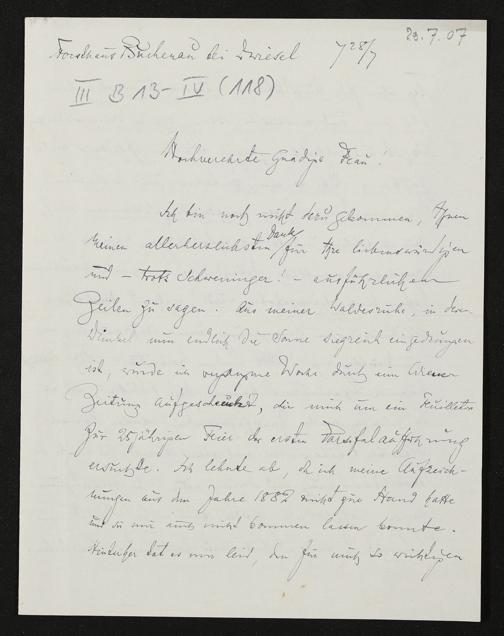 23.7.07
Forsthaus Buchenau bei Zwiesel 728/7
III B 13-IV (118)
Hochverehrte Gnädige Frau!
Ich bin noch nicht dazu gekommen, Ihnen
meinen allerherzlichsten Dank für Ihre liebenswürdigen
und – trotz Schweninger! – ausführlichen
Zeilen zu sagen. Aus meiner Waldesruhe, in deren
Dunkel nun endlich die Sonne siegreich eingedrungen
ist, wurde ich vergangene Woche durch eine
Zeitung aufgeschreckt, die mich um ein Feuilleton
zur 25jährigen Feier der ersten Parsifalaufführung
ersuchte. Ich lehnte ab, da ich meine Aufzeich-
nungen aus dem Jahre 1882 nicht zur Hand hatte
und sie mir auch nicht kommen lassen konnte.
Hinterher tat es mir leid, den für mich so wichtigen